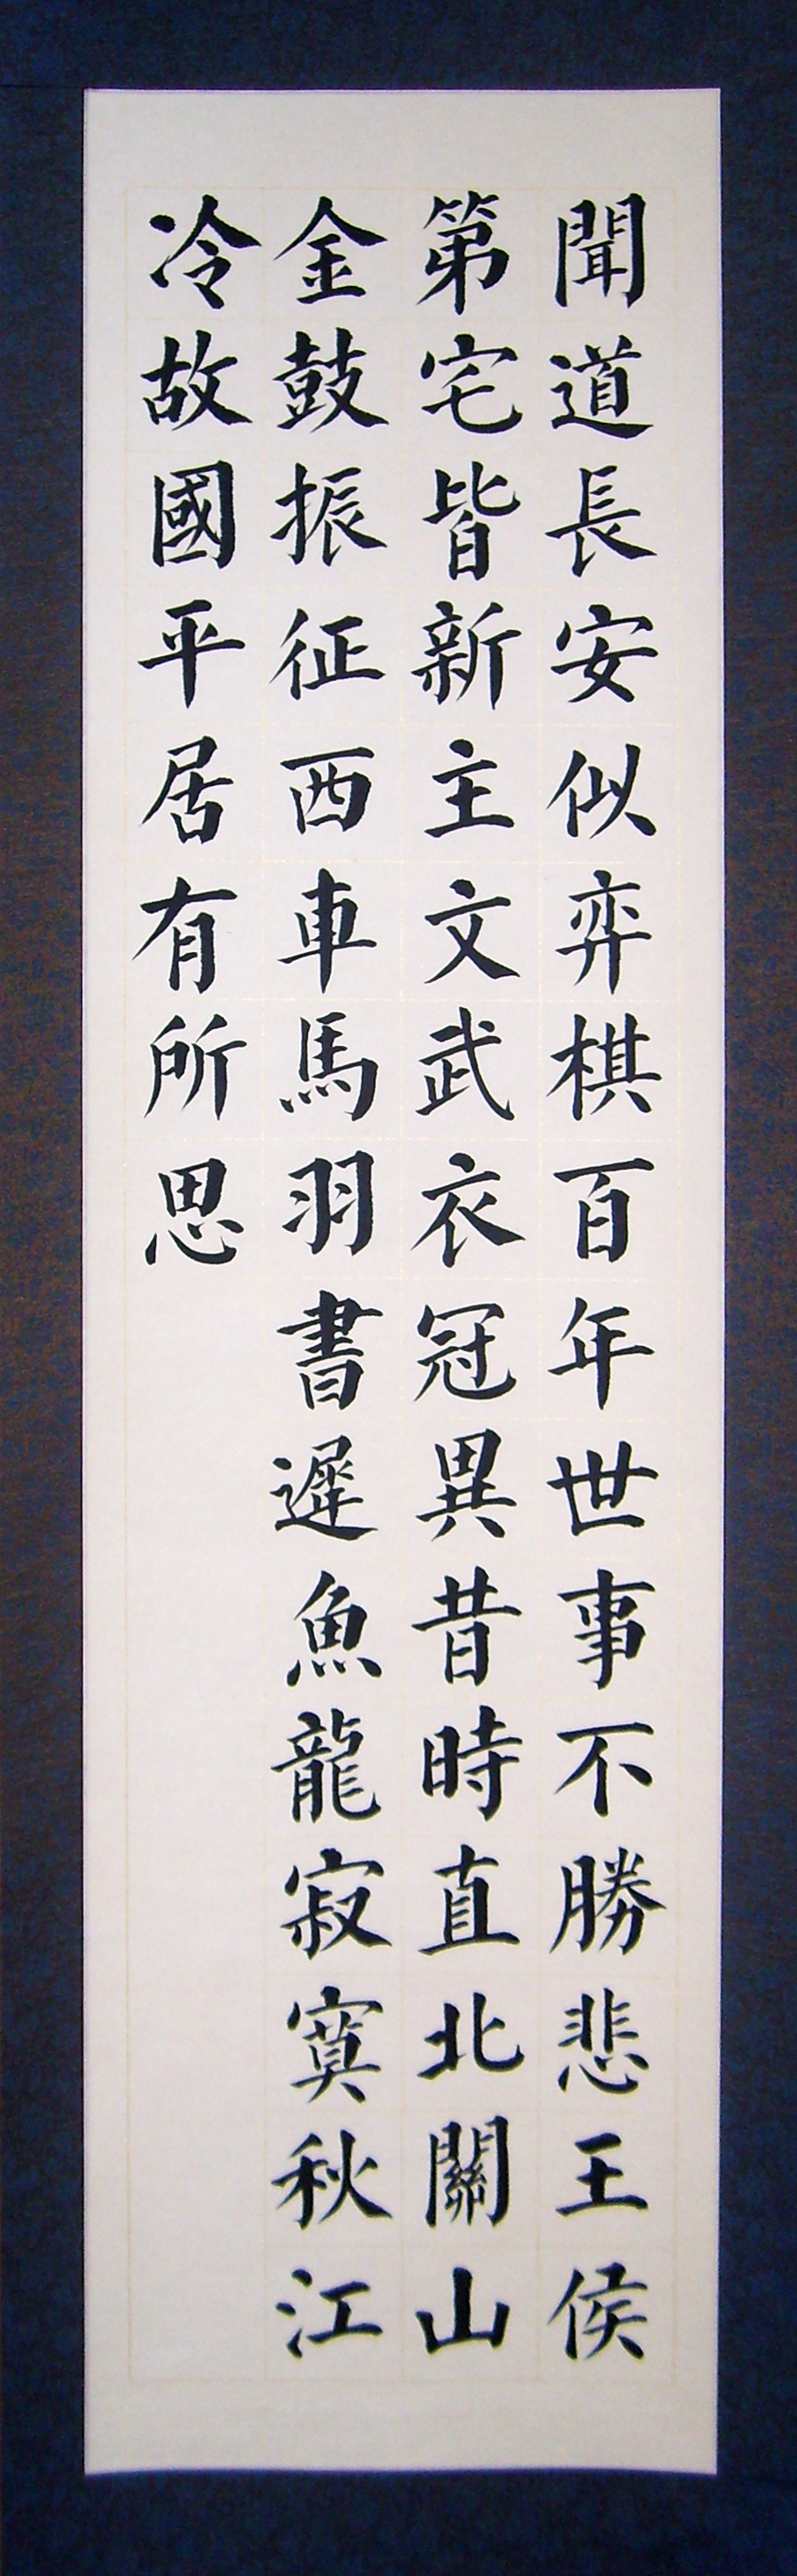 聞道長安似弈棋百年世事不勝悲王侯
第宅皆新主文武衣冠異昔時直北關山
金鼓振征西車馬羽書遲魚龍寂寞秋江
冷故國平居有所思